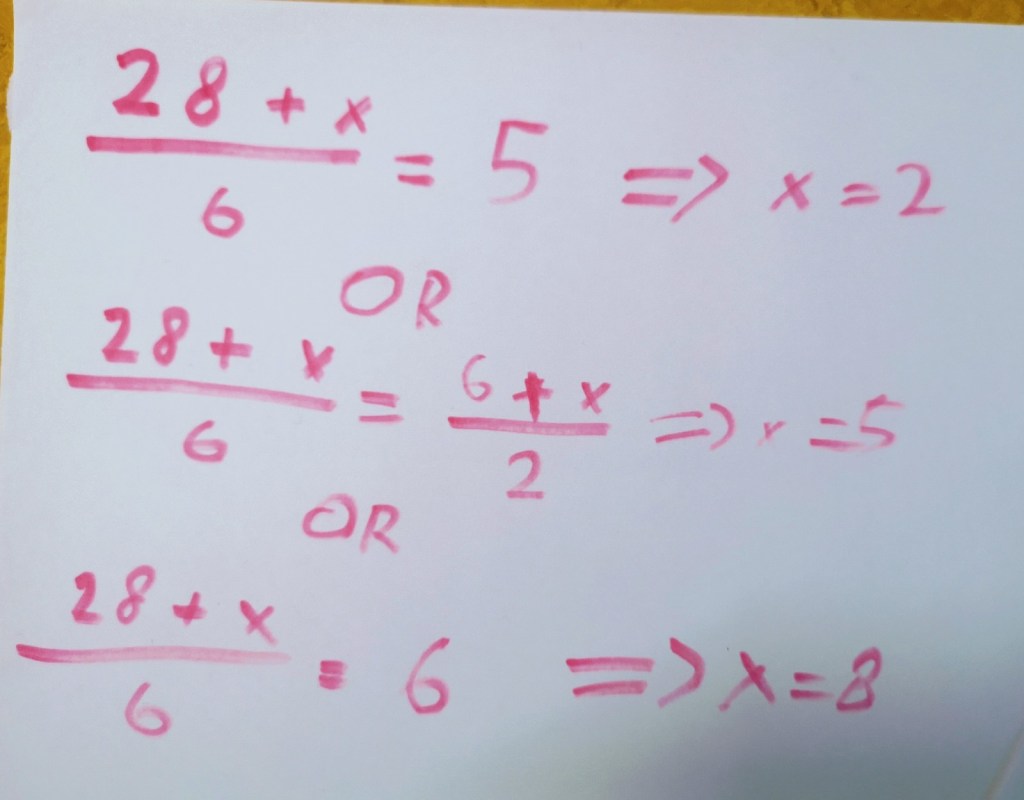 28 + x / 6 = 5 => x = 2
OR
28 + x / 6 = 6 + x / 2 => x = 5
OR
28 + x / 6 = 6 => x = 8